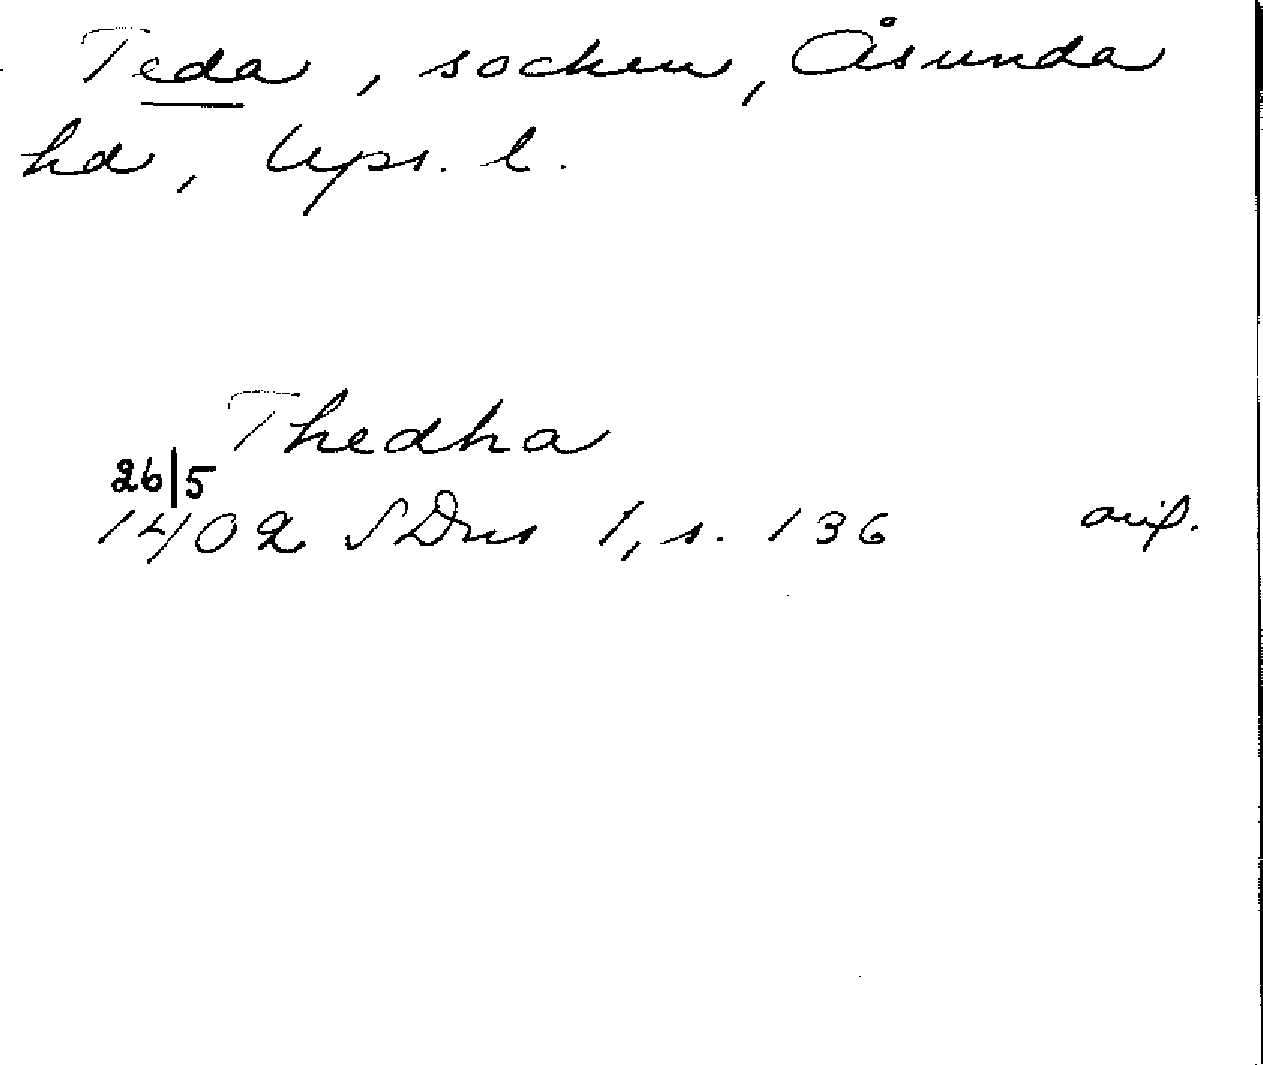 Teda, socken, Åsunda
hd, Ups. l.
Thedha
26/5
1402 SDns 1, s. 136 orig.